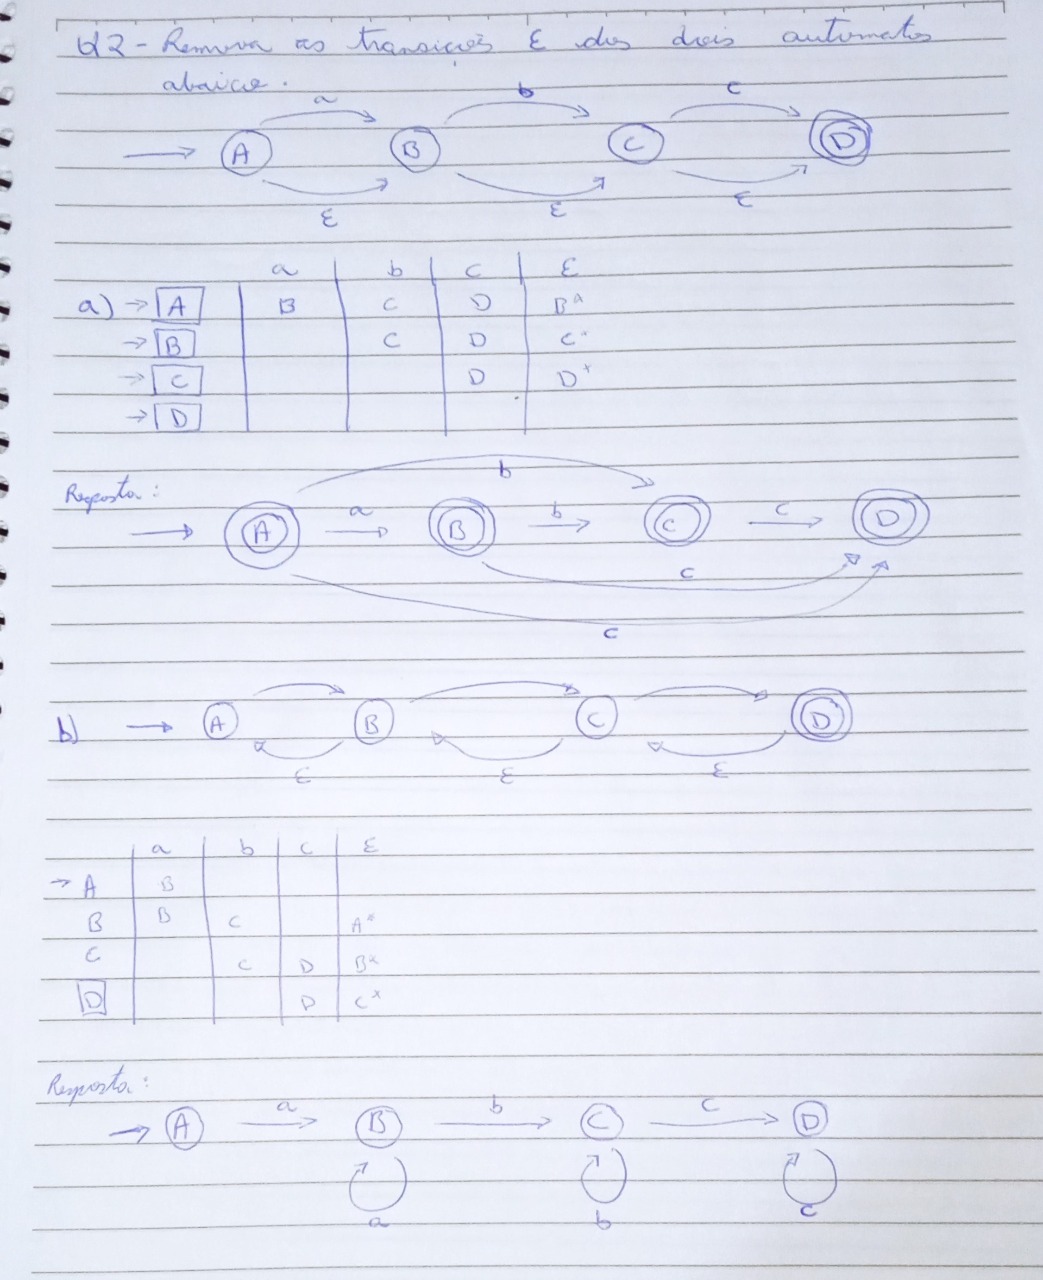 Q2 - Remova as transições ε dos dois automatos
abaixo.
a b c
A B C D
ε ε ε
a b c ε
a) → A B C D B*
→ B C D C*
→ C D D*
→ D
b
Resposta:
A a B b C c D
c
c
b) A B C D
ε ε ε
a b c ε
→ A B
B B C A*
C C D B*
D D C*
Resposta:
a b c
A B C D
a b c